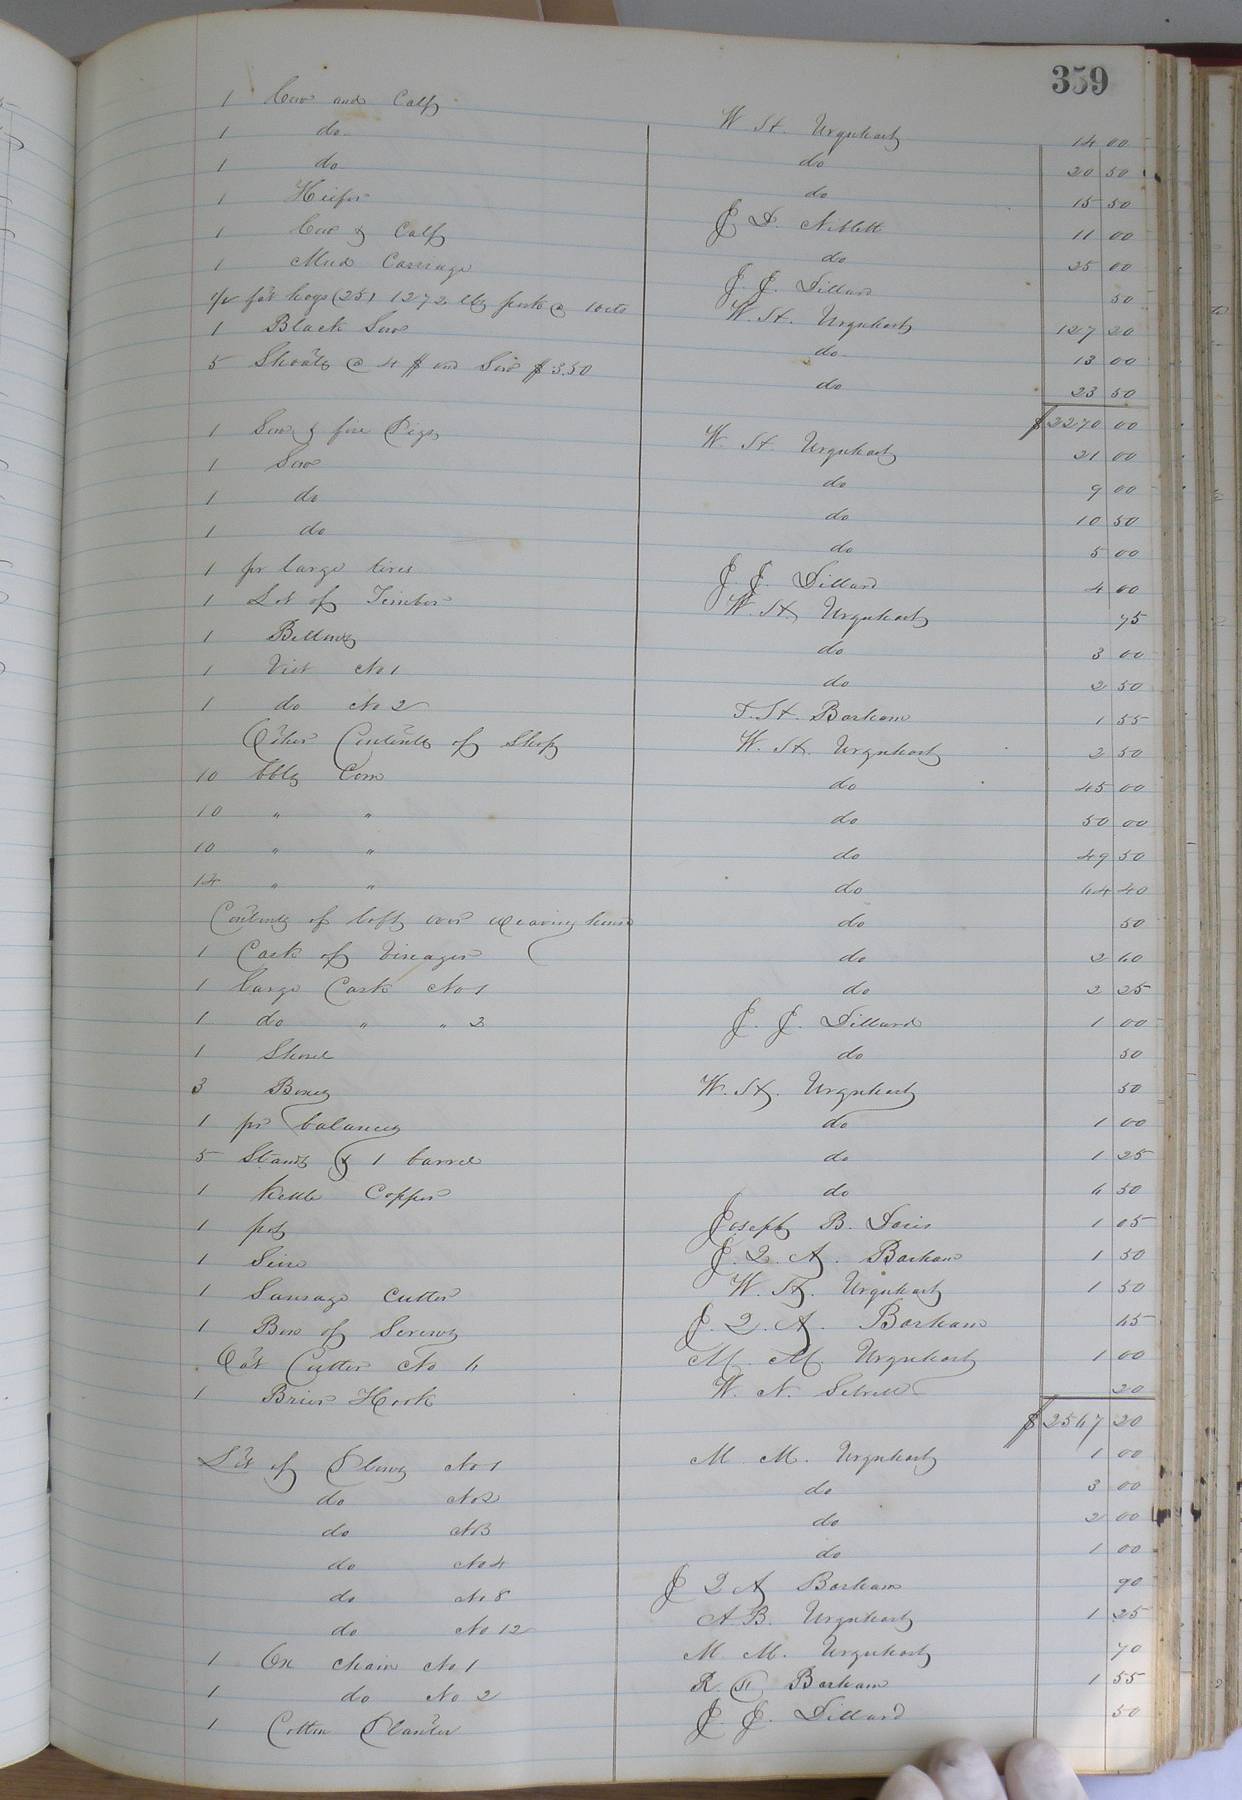 359
1 Cow and Calf W. H. Urquhart 14 00
1 do do 20 50
1 do do 15 50
1 Heifer J. D. Niblett 11 00
1 Cow & Calf do 25 00
1 Mud Carriage J. J. Dillard 50
fat hogs (25) 1272 lbs pork @ 10 cts W. H. Urquhart 127 20
1 Black Sow do 13 00
5 Shoats @ 4 $ and Sow $ 3.50 do 23 50
$2270 00
1 Sow & five Pigs W. H. Urquhart 21 00
1 Sow do 9 00
1 do do 10 50
1 do do 5 00
1 pr large tires J. J. Dillard 4 00
1 Lot of Timber W. H. Urquhart 75
1 Bellows do 3 00
1 Vice No 1 do 2 50
1 do No 2 T. H. Barham 1 55
Other Contents of Shop W. H. Urquhart 2 50
10 bbls Corn do 45 00
10 " " do 50 00
10 " " do 49 50
14 " " do 64 40
Contents of loft over weaving house do 50
1 Cask of Vinegar do 2 60
1 large Cask No 1 do 2 25
1 do " " 2 J. J. Dillard 1 00
1 Shovel do 50
3 Boxes W. H. Urquhart 50
1 pr balances do 1 00
5 Stands & 1 barrel do 1 25
1 Kettle Copper do 6 50
1 pot Joseph B. Davis 1 05
1 Sieve J. Q. A. Barham 1 50
1 Sausage Cutter W. H. Urquhart 1 50
1 Box of Screws J. Q. A. Barham 45
Oat Cutter No 6 M. M. Urquhart 1 00
1 Brier Hook W. N. 20
$2567 20
Lot of Plows No 1 M. M. Urquhart 1 00
do No 2 do 3 00
do No 3 do 2 00
do No 4 do 1 00
do No 8 J Q A Barham 90
do No 12 A. B. Urquhart 1 25
1 Ox chain No 1 M. M. Urquhart 70
1 do No 2 R. Barham 1 55
1 Cotton Planter J. J. Dillard 50